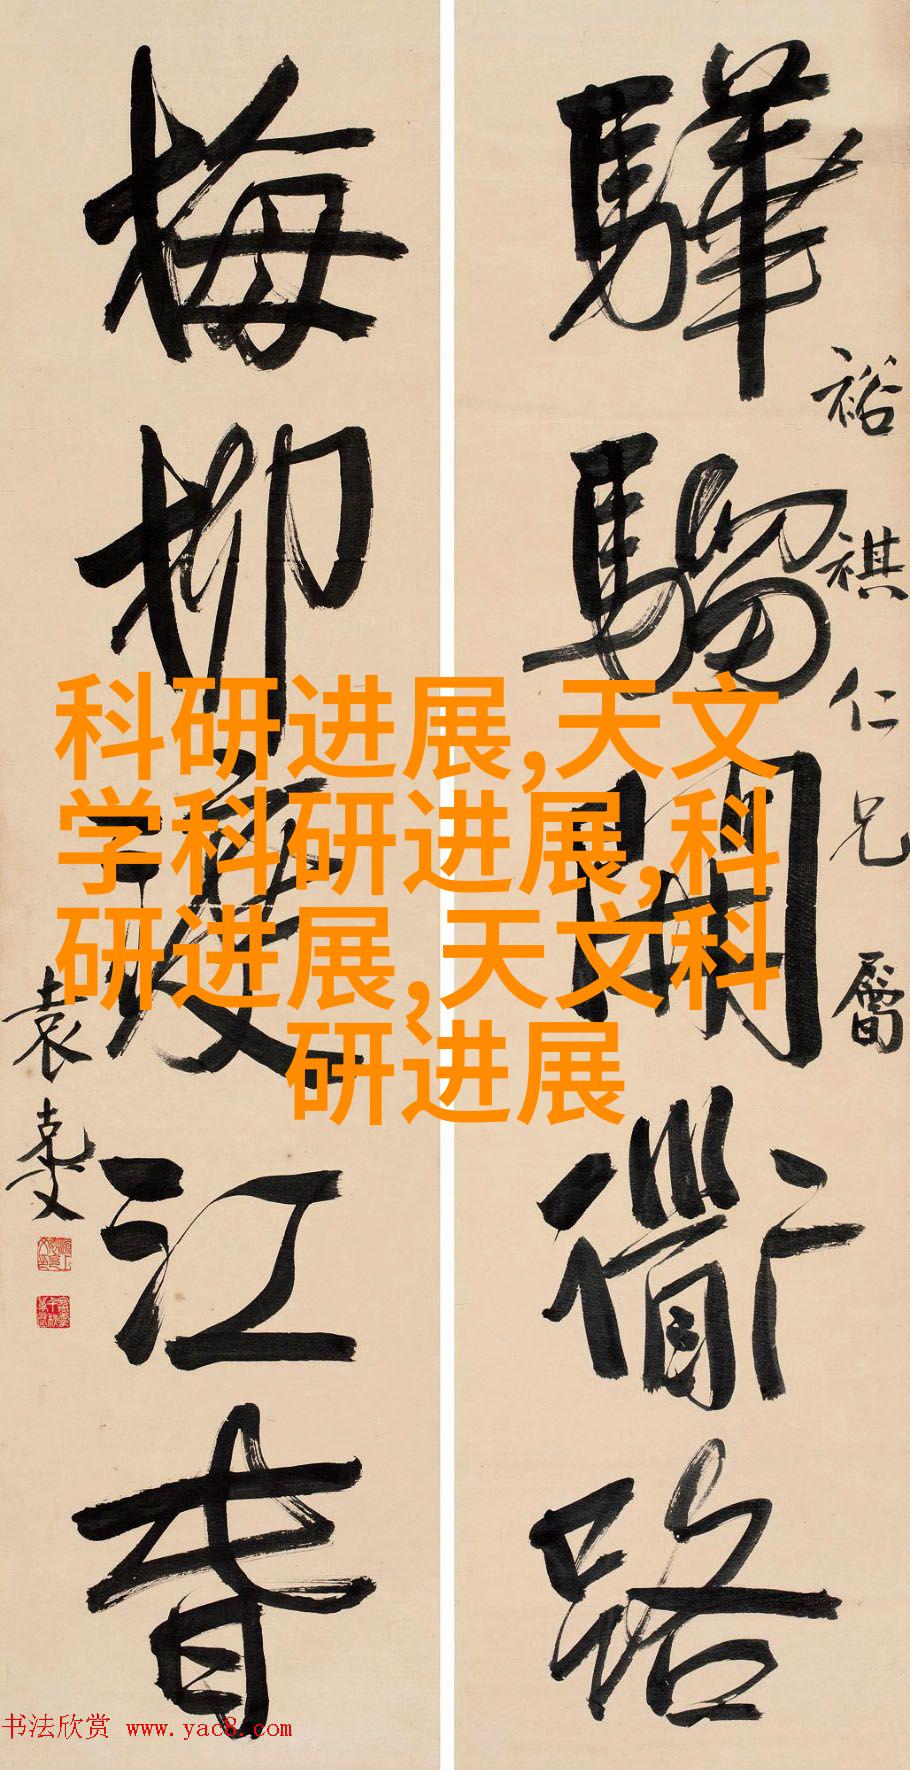 驊騮開衜路
裕祺仁兄屬
梅柳渡江春
袁克文
科研进展,天文
学科研进展,科
研进展,天文科
研进展
书法欣赏 www.yac8.com